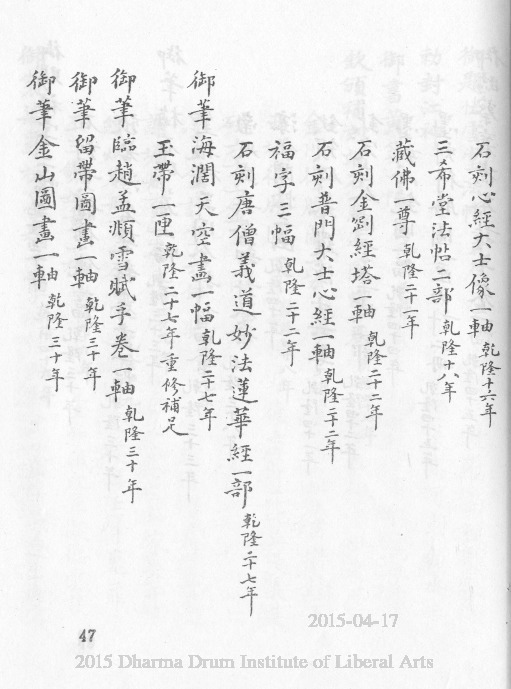 石刻心經大士像一軸 乾隆十六年
三希堂法帖二部 乾隆十八年
藏佛一尊 乾隆二十一年
石刻金剛經塔一軸 乾隆二十二年
石刻普門大士心經一軸 乾隆二十二年
福字三幅 乾隆二十二年
石刻唐僧義道妙法蓮華經一部 乾隆二十七年
御筆海濶天空畫一幅 乾隆二十七年
玉帶一匣 乾隆二十七年重修補足
御筆臨趙孟頫雪賦手卷一軸 乾隆三十年
御筆留帶圖畫一軸 乾隆三十年
御筆金山圖畫一軸 乾隆三十年
47
2015-04-17
2015 Dharma Drum Institute of Liberal Arts